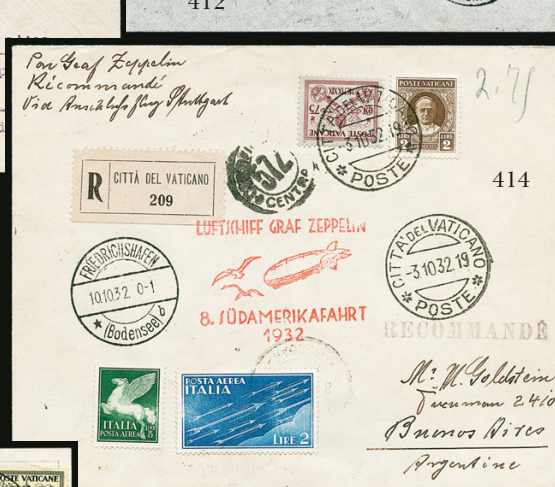 412
Por Graf Zeppelin
Récommandé
Via Anschlussflug Stuttgart
2.75
POSTE VATICANE
CITTÀ DEL VATICANO
-3.10.32.19
POSTE
POSTE VATICANE
LIRE 2
414
R
CITTÀ DEL VATICANO
209
572
CENTRO
LUFTSCHIFF GRAF ZEPPELIN
8. SÜDAMERIKAFAHRT
1932
FRIEDRICHSHAFEN
10.10.32. 0-1
(Bodensee) b
CITTÀ DEL VATICANO
-3.10.32.19
POSTE
RECOMMANDÉ
ITALIA
POSTA AEREA
LIRE 5
POSTA AEREA
ITALIA
LIRE 2
Mr. M. Goldstein
Tucuman 24
Buenos Aires
Argentine
POSTE VATICANE